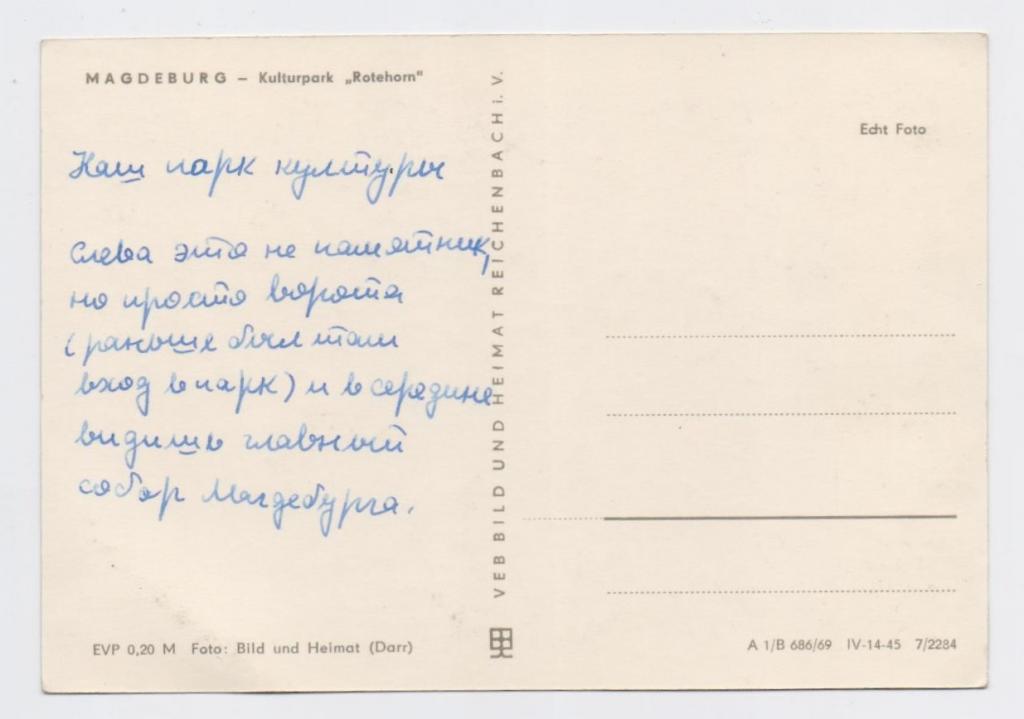 MAGDEBURG – Kulturpark „Rotehorn"
Наш парк культуры
Слева это не памятник,
но просто ворота
(раньше был там
вход в парк) и в середине
видишь главный
собор Магдебурга.
EVP 0,20 M Foto: Bild und Heimat (Darr)
VEB BILD UND HEIMAT REICHENBACH i. V.
Echt Foto
A 1/B 686/69 IV-14-45 7/2284